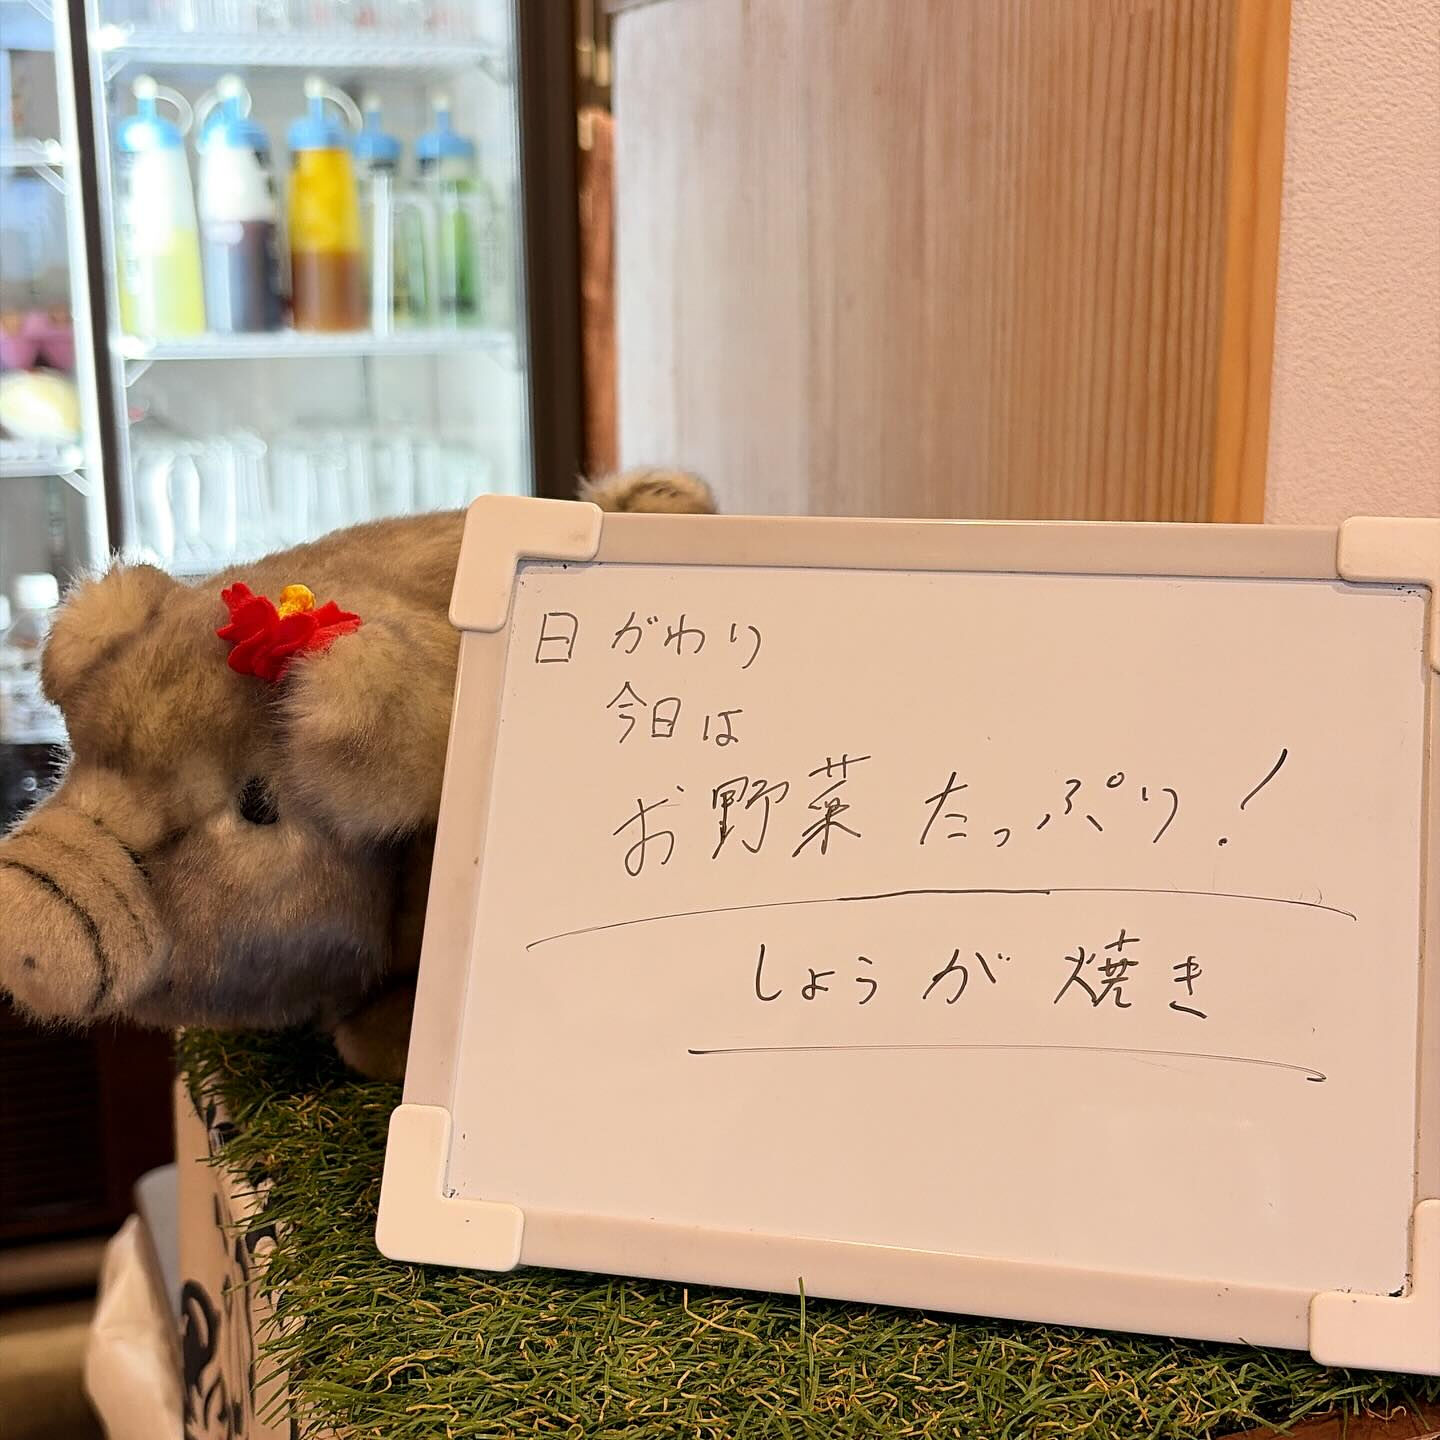 日がわり
今日は
お野菜たっぷり!
しょうが焼き